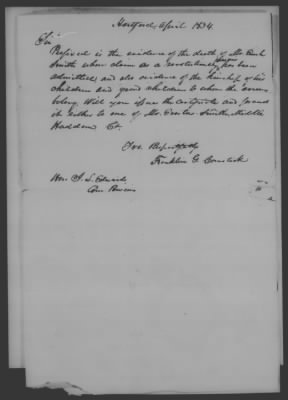 Hartford, April 1854.
Sir
Inclosed is the evidence of the death of Mr.
Smith whose claim as a revolutionary has been
admitted, and also evidence of the kinship of his
children and grand children to whom the arrears
belong. Will you issue the certificate and send
it either to me or Mr. Smith, Middle
Haddam Ct.
Yrs Respectfully
Franklin G. Comstock
Hon. J. L. Edwards
Com Pensions